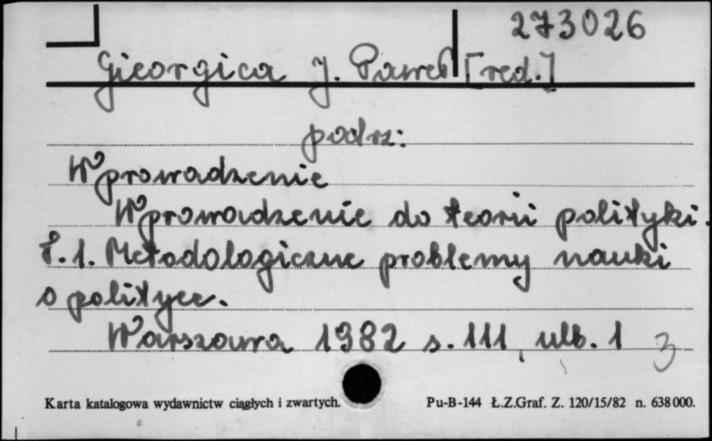 273026
Gieorgica J. Paweł [red.]
podrz:
Wprowadzenie
Wprowadzenie do teorii polityki.
T. 1. Metodologiczne problemy nauki
o polityce.
Warszawa 1982 s. 111, ulb. 1 3
Karta katalogowa wydawnictw ciągłych i zwartych. Pu-B-144 Ł.Z.Graf. Z. 120/15/82 n. 638000.